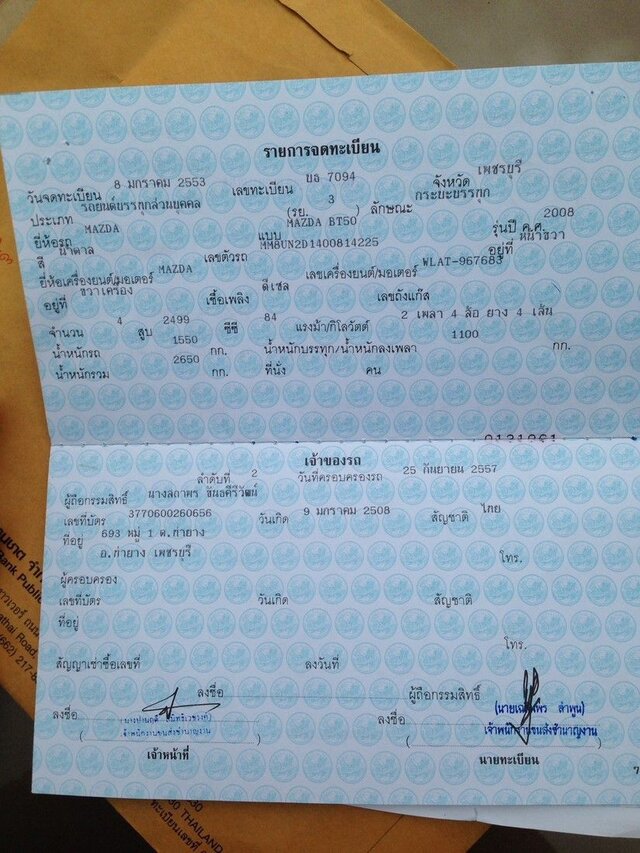 รายการจดทะเบียน
วันจดทะเบียน 8 มกราคม 2553 เลขทะเบียน บธ 7094 จังหวัด เพชรบุรี
ประเภท รถยนต์บรรทุกส่วนบุคคล (รย. 3 ) ลักษณะ กระบะบรรทุก
ยี่ห้อรถ MAZDA แบบ MAZDA BT50 รุ่นปี ค.ศ. 2008
สี น้ำตาล เลขตัวรถ MM8UN2D1400814225 อยู่ที่ หน้าขวา
ยี่ห้อเครื่องยนต์/มอเตอร์ MAZDA เลขเครื่องยนต์/มอเตอร์ WLAT-967683
อยู่ที่ ขวาเครื่อง เชื้อเพลิง ดีเซล เลขถังแก๊ส
จำนวน 4 สูบ 2499 ซีซี 84 แรงม้า/กิโลวัตต์ 2 เพลา 4 ล้อ ยาง 4 เส้น
น้ำหนักรถ 1550 กก. น้ำหนักบรรทุก/น้ำหนักลงเพลา 1100 กก.
น้ำหนักรวม 2650 กก. ที่นั่ง คน
เจ้าของรถ
ลำดับที่ 2 วันที่ครอบครองรถ 25 กันยายน 2557
ผู้ถือกรรมสิทธิ์ นางลดาพร
เลขที่บัตร 3770600260656 วันเกิด 9 มกราคม 2508 สัญชาติ ไทย
ที่อยู่ 693 หมู่ 1 ต.ท่ายาง
อ.ท่ายาง เพชรบุรี โทร.
ผู้ครอบครอง
เลขที่บัตร วันเกิด สัญชาติ
ที่อยู่
โทร.
สัญญาเช่าซื้อเลขที่ ลงวันที่
ลงชื่อ ผู้ถือกรรมสิทธิ์
ลงชื่อ ลงชื่อ
ลำพูน)
เจ้าพนักงานขนส่งชำนาญงาน เจ้าพนักงานขนส่งชำนาญงาน
เจ้าหน้าที่ นายทะเบียน
7